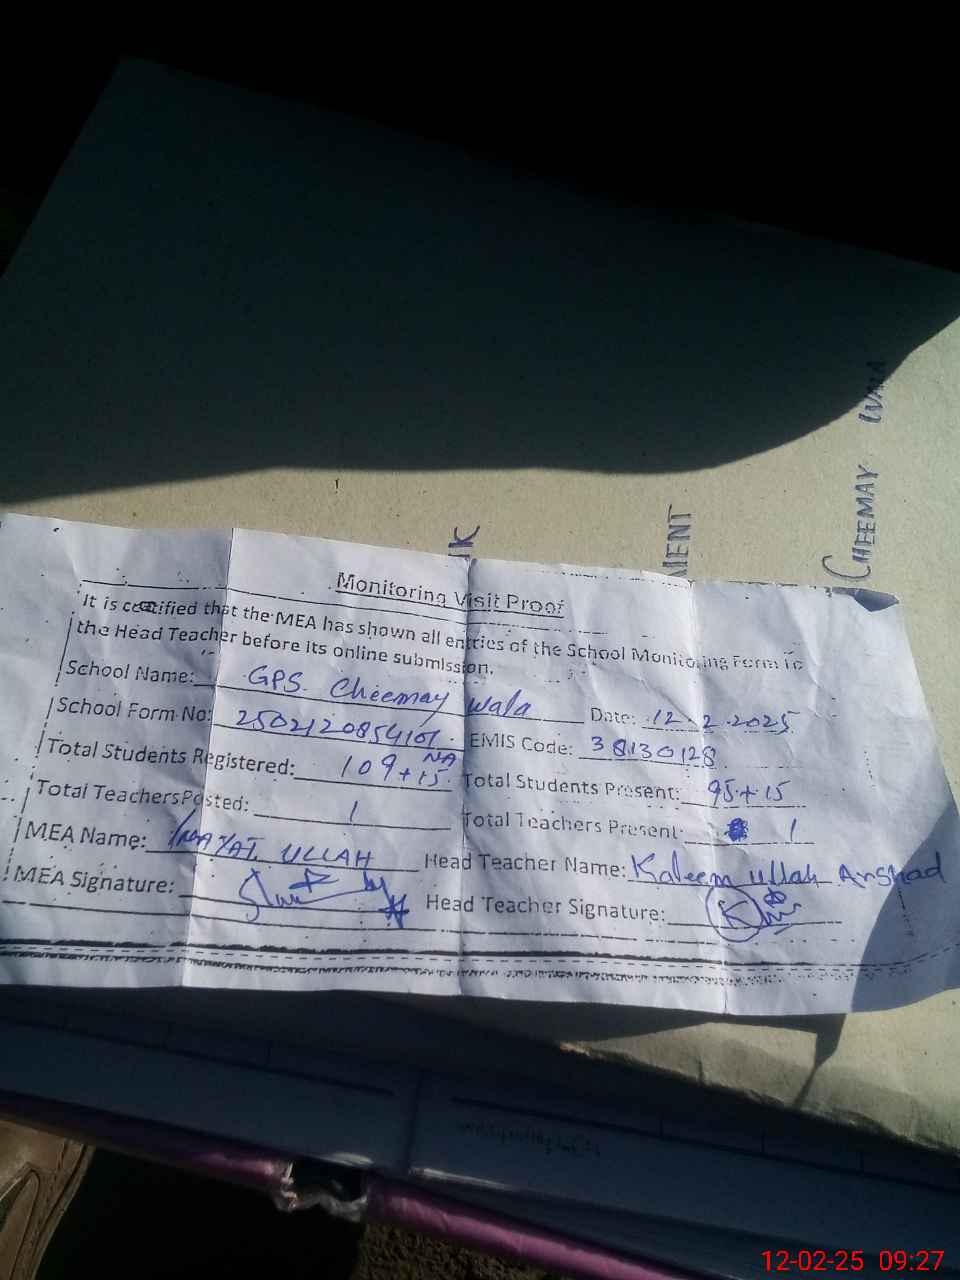 CHEEMAY WALA
MENT
IK
Monitoring Visit Proof
It is certified that the MEA has shown all entries of the School Monitoring Form to
the Head Teacher before its online submission.
School Name: GPS. Cheemay Wala Date: 12.2.2025
School Form No: 2502120854101 EMIS Code: 38130128
Total Students Registered: 109+15 NA Total Students Present: 95+15
Total Teachers Posted: 1 Total Teachers Present: 1
MEA Name: INAYAT ULLAH Head Teacher Name: Kaleem ullah Arshad
MEA Signature: Head Teacher Signature:
12-02-25 09:27